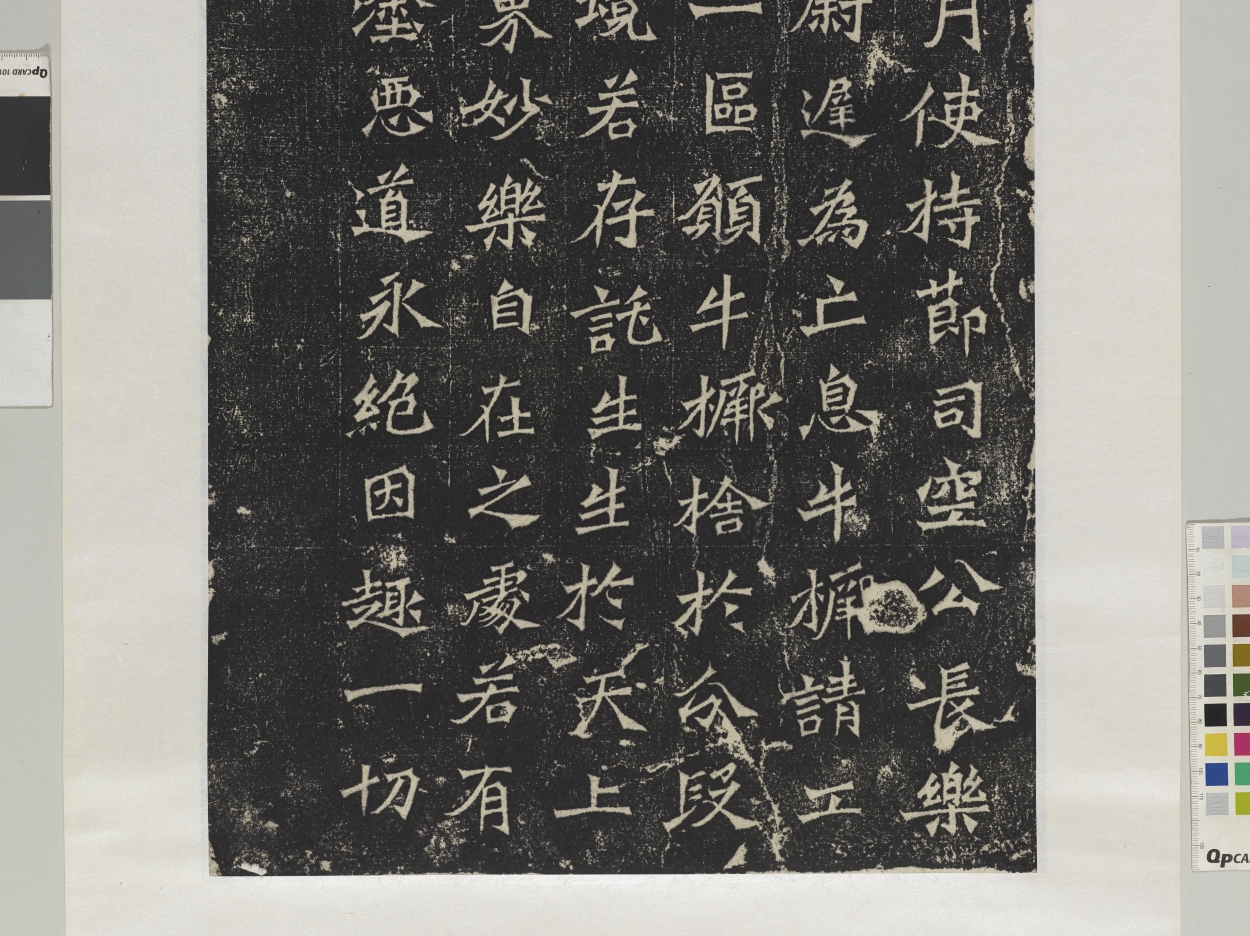 月使持節司空公長樂
尉遲為亡息牛橛請工
一區願牛橛捨於分段
境若存託生生於天上
界妙樂自在之處若有
塗惡道永絕因趣一切
QpCARD 101
QpCA